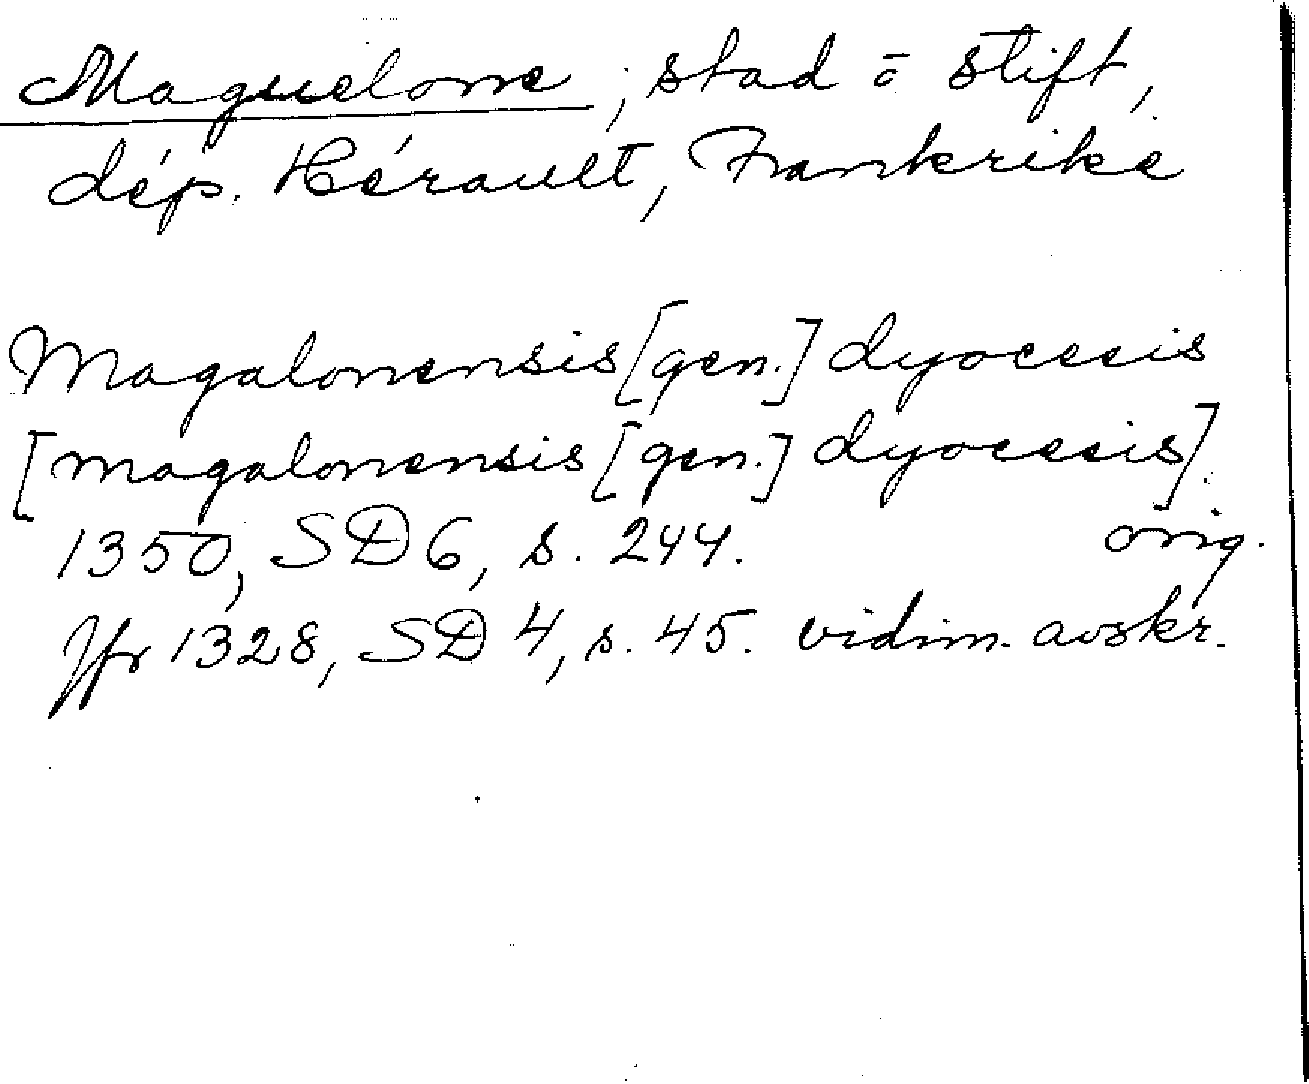 Maguelonne, stad o stift,
dép. Hérault, Frankrike
Magalonensis [gen.] dyocesis
[magalonensis [gen.] dyocesis].
1350, SD 6, s. 244. orig.
Jfr 1328, SD 4, s. 45. vidim. avskr.